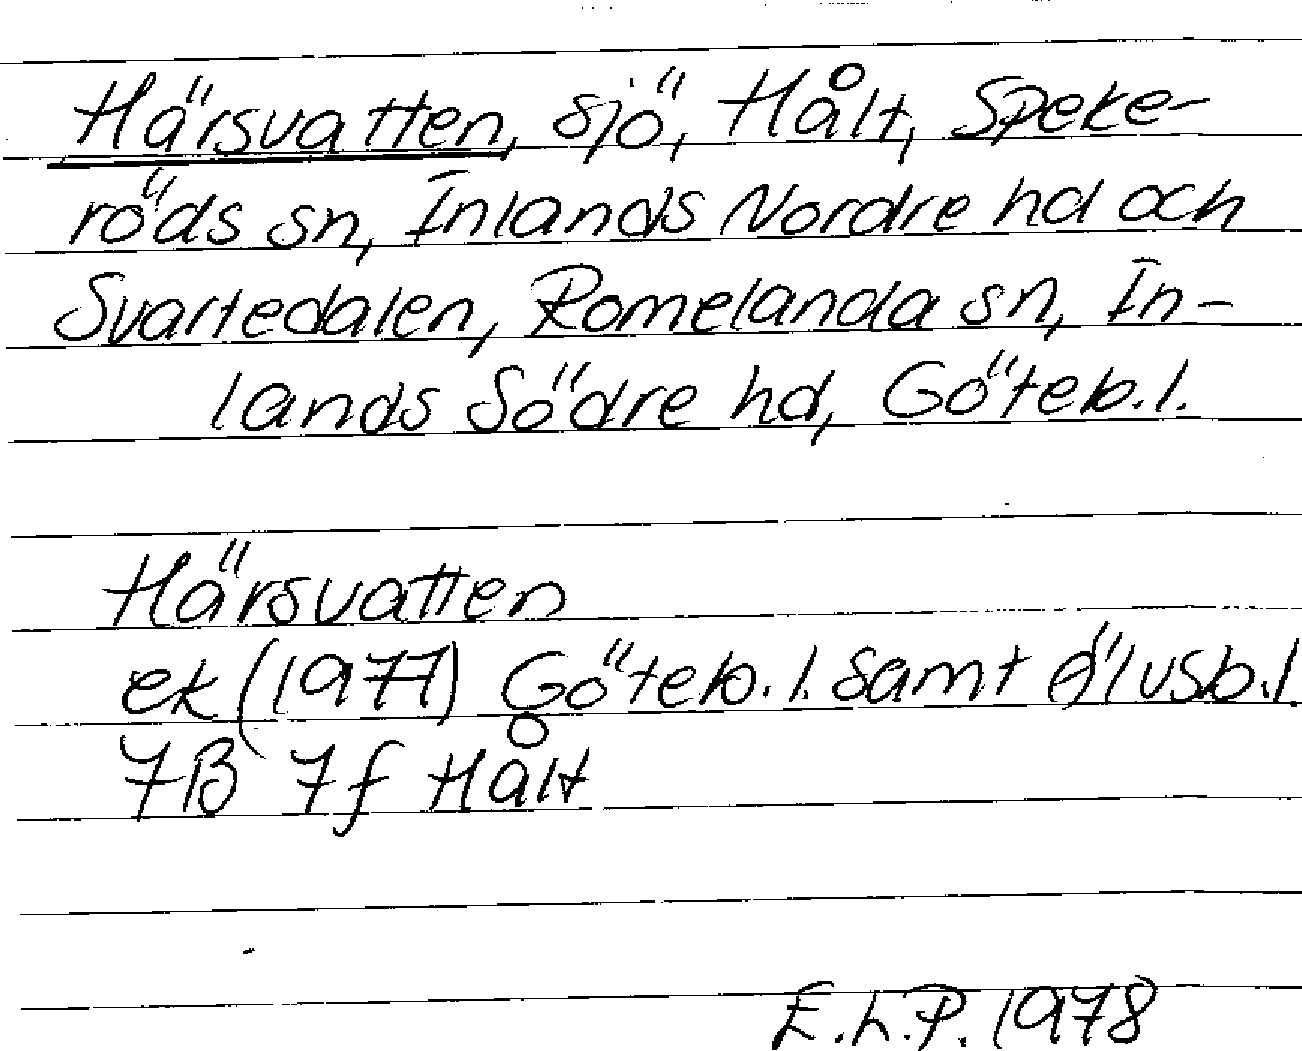 Härsvatten, sjö, Hålt, Speke-
röds sn, Inlands Nordre hd och
Svartedalen, Romelanda sn, In-
lands Södre hd, Göteb.l.
Härsvatten
ek (1977) Göteb.l. samt Älvsb.l.
7B 7f Hålt
E.L.P. 1978